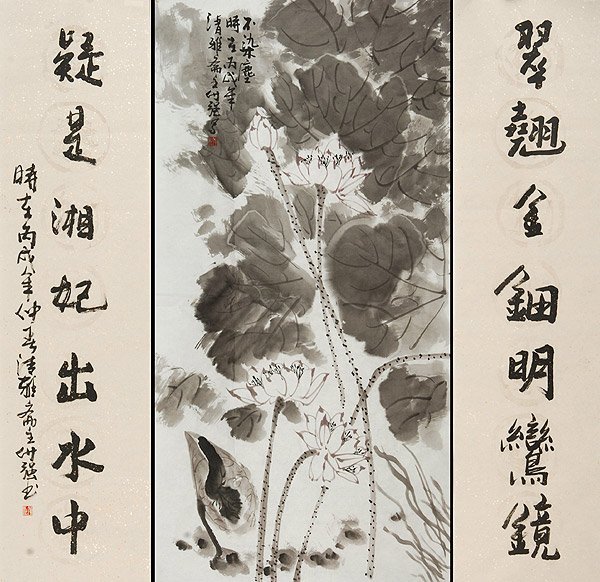 翠翹金鈿明鸞鏡
不染塵
時在丙戌年
清雅齋主強寫
疑是湘妃出水中
時在丙戌年仲春清雅齋主強書